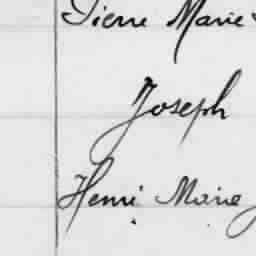 Pierre Marie
Joseph
Henri Marie